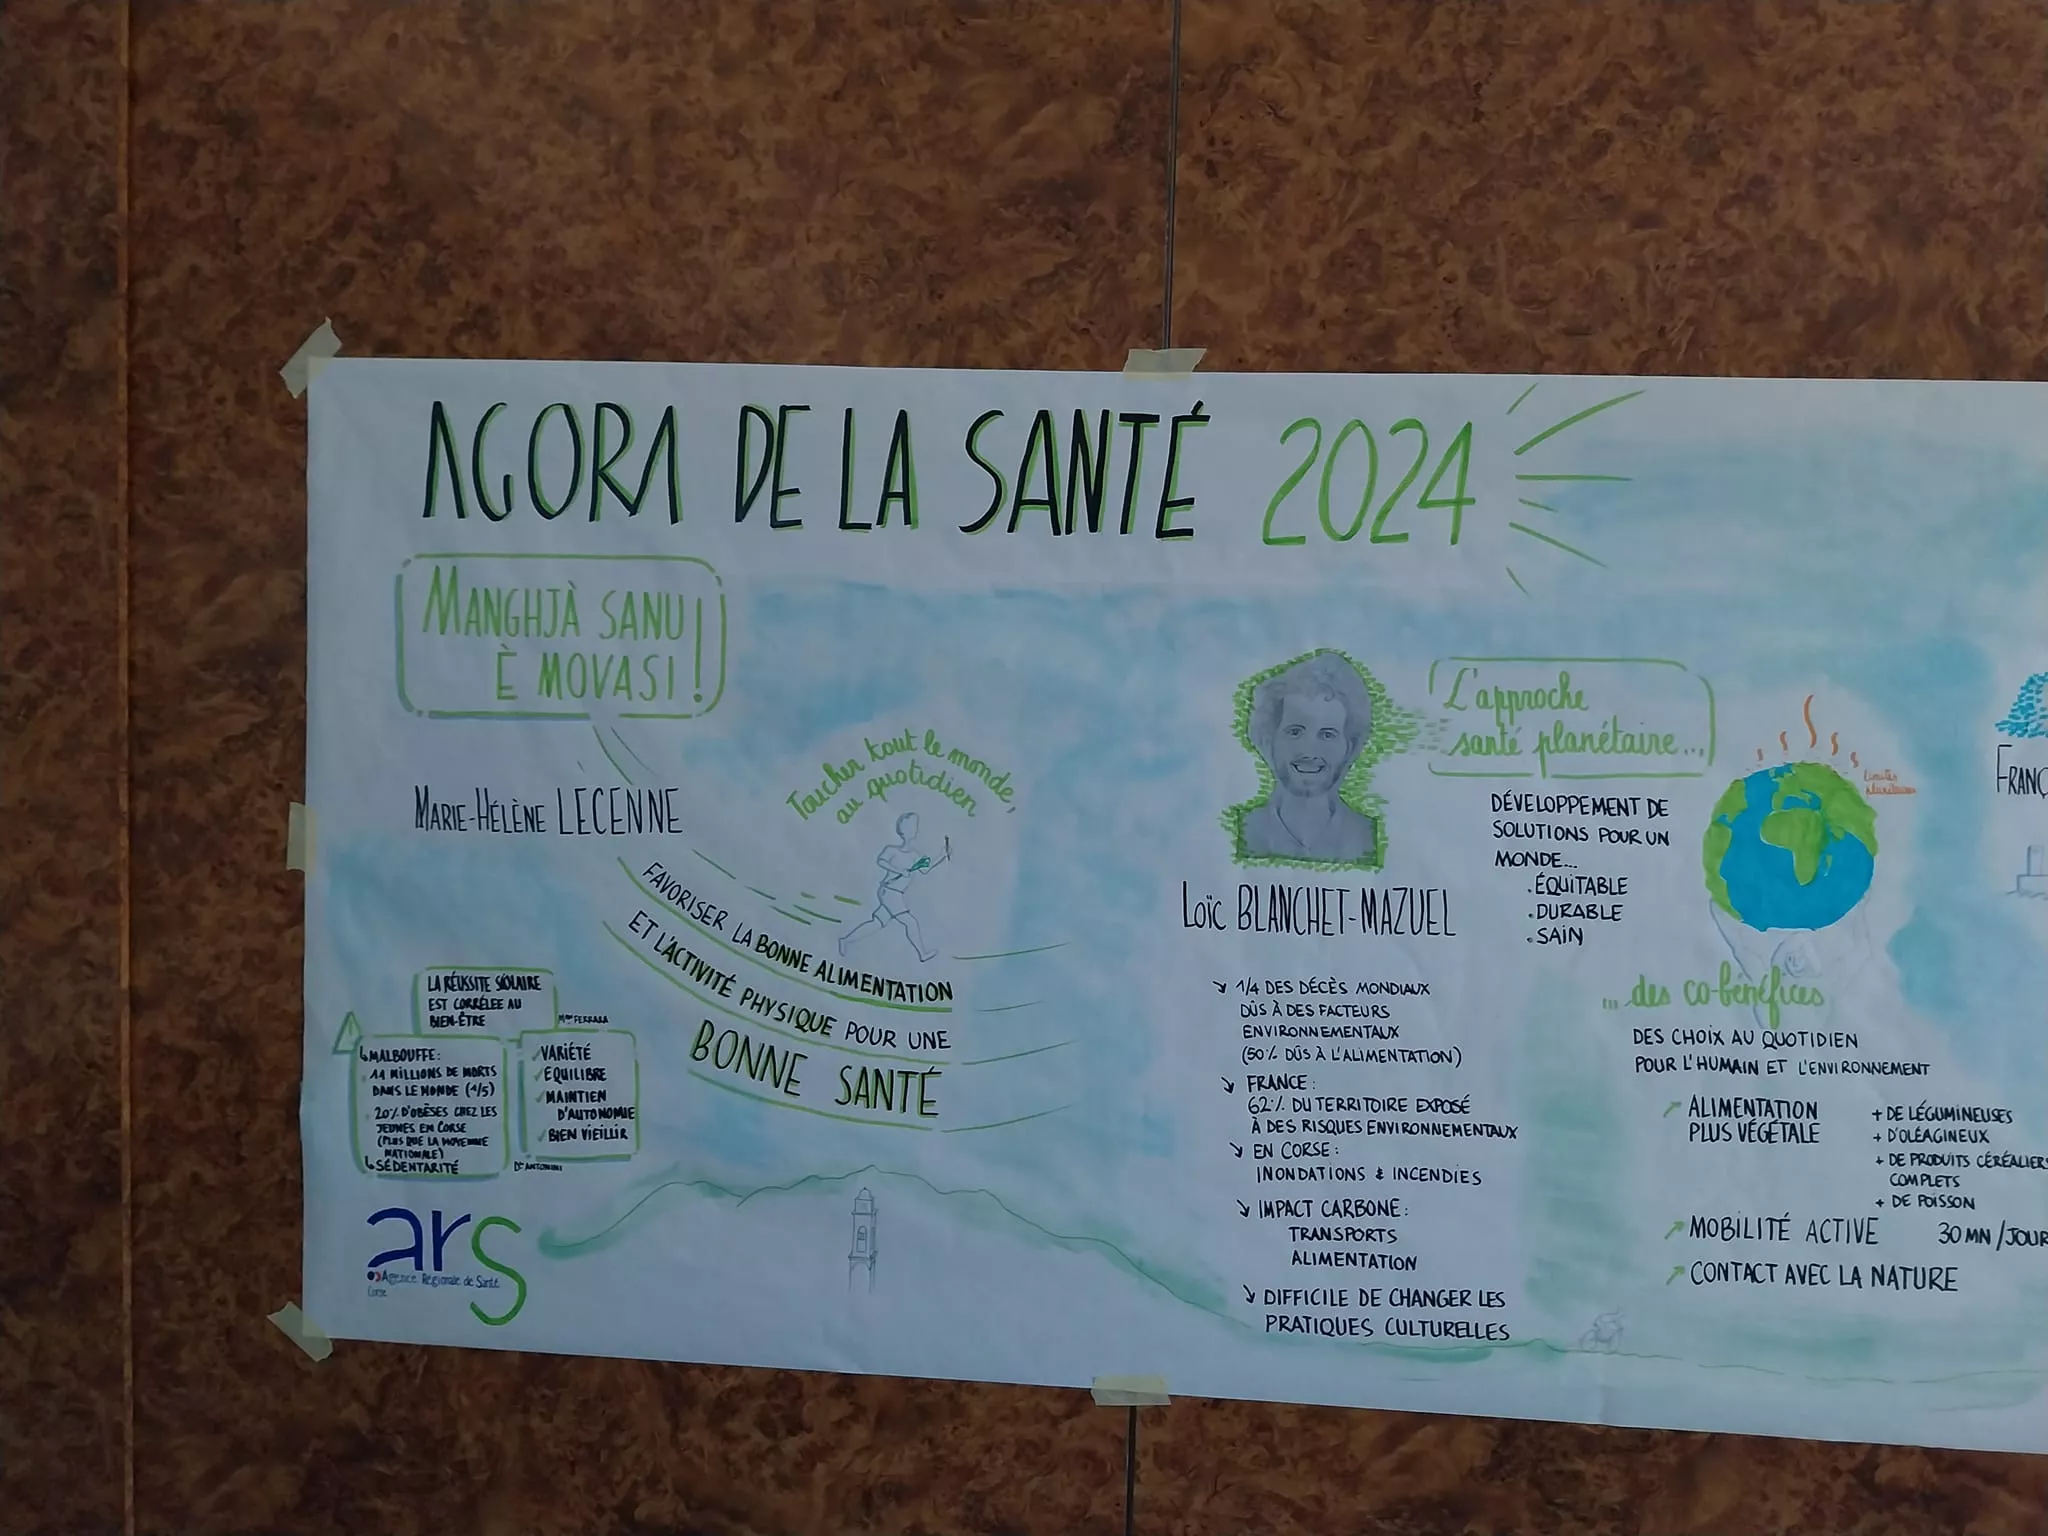 AGORA DE LA SANTÉ 2024
MANGHJÀ SANU
È MOVASI !
MARIE-HÉLÈNE LECENNE
Toucher tout le monde,
au quotidien
FAVORISER LA BONNE ALIMENTATION
ET L'ACTIVITÉ PHYSIQUE POUR UNE
BONNE SANTÉ
LA RÉUSSITE SCOLAIRE
EST CORRÉLÉE AU
BIEN-ÊTRE
Mme FERRARA
! MALBOUFFE :
11 MILLIONS DE MORTS
DANS LE MONDE (1/5)
20% D'OBÈSES CHEZ LES
JEUNES EN CORSE
(PLUS QUE LA MOYENNE
NATIONALE)
SÉDENTARITÉ
VARIÉTÉ
ÉQUILIBRE
MAINTIEN
D'AUTONOMIE
BIEN VIEILLIR
Dr ANTONINI
ars
Agence Régionale de Santé
Corse
LOÏC BLANCHET-MAZUEL
L'approche
santé planétaire...
DÉVELOPPEMENT DE
SOLUTIONS POUR UN
MONDE...
. ÉQUITABLE
. DURABLE
. SAIN
Limites
planétaires
↘ 1/4 DES DÉCÈS MONDIAUX
DÛS À DES FACTEURS
ENVIRONNEMENTAUX
(50% DÛS À L'ALIMENTATION)
↘ FRANCE :
62% DU TERRITOIRE EXPOSÉ
À DES RISQUES ENVIRONNEMENTAUX
↘ EN CORSE :
INONDATIONS & INCENDIES
↘ IMPACT CARBONE :
TRANSPORTS
ALIMENTATION
↘ DIFFICILE DE CHANGER LES
PRATIQUES CULTURELLES
... des co-bénéfices
DES CHOIX AU QUOTIDIEN
POUR L'HUMAIN ET L'ENVIRONNEMENT
↗ ALIMENTATION
PLUS VÉGÉTALE
+ DE LÉGUMINEUSES
+ D'OLÉAGINEUX
+ DE PRODUITS CÉRÉALIERS
COMPLETS
+ DE POISSON
↗ MOBILITÉ ACTIVE 30 MN / JOUR
↗ CONTACT AVEC LA NATURE
FRANÇ